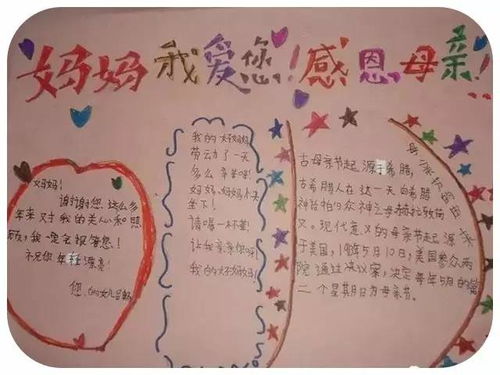 妈妈我爱您!感恩母亲!
妈妈!
谢谢您这么多
年来对我的关心和照
顾,我一定会报答您!
您
我的好妈妈
劳动了一天
多么辛苦呀!
妈妈,妈妈快
坐下!
请喝一杯茶!
让我亲亲你吧
我的好妈妈
母亲节的由来
古母亲节起源于希腊,
古希腊人在这一天向希腊
神话的众神之母赫拉致敬
义。现代意义的母亲节起源
于美国,1914年5月10日,美国参众两
院通过决议案,决定每年5月的第
二个星期日为母亲节。